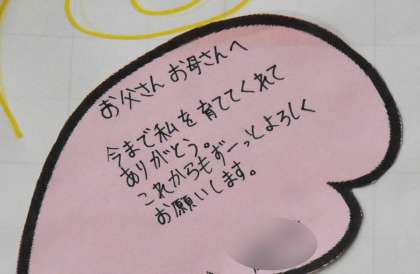 お父さん お母さんへ
今まで私を育ててくれて
ありがとう。
これからもずーっとよろしく
お願いします。